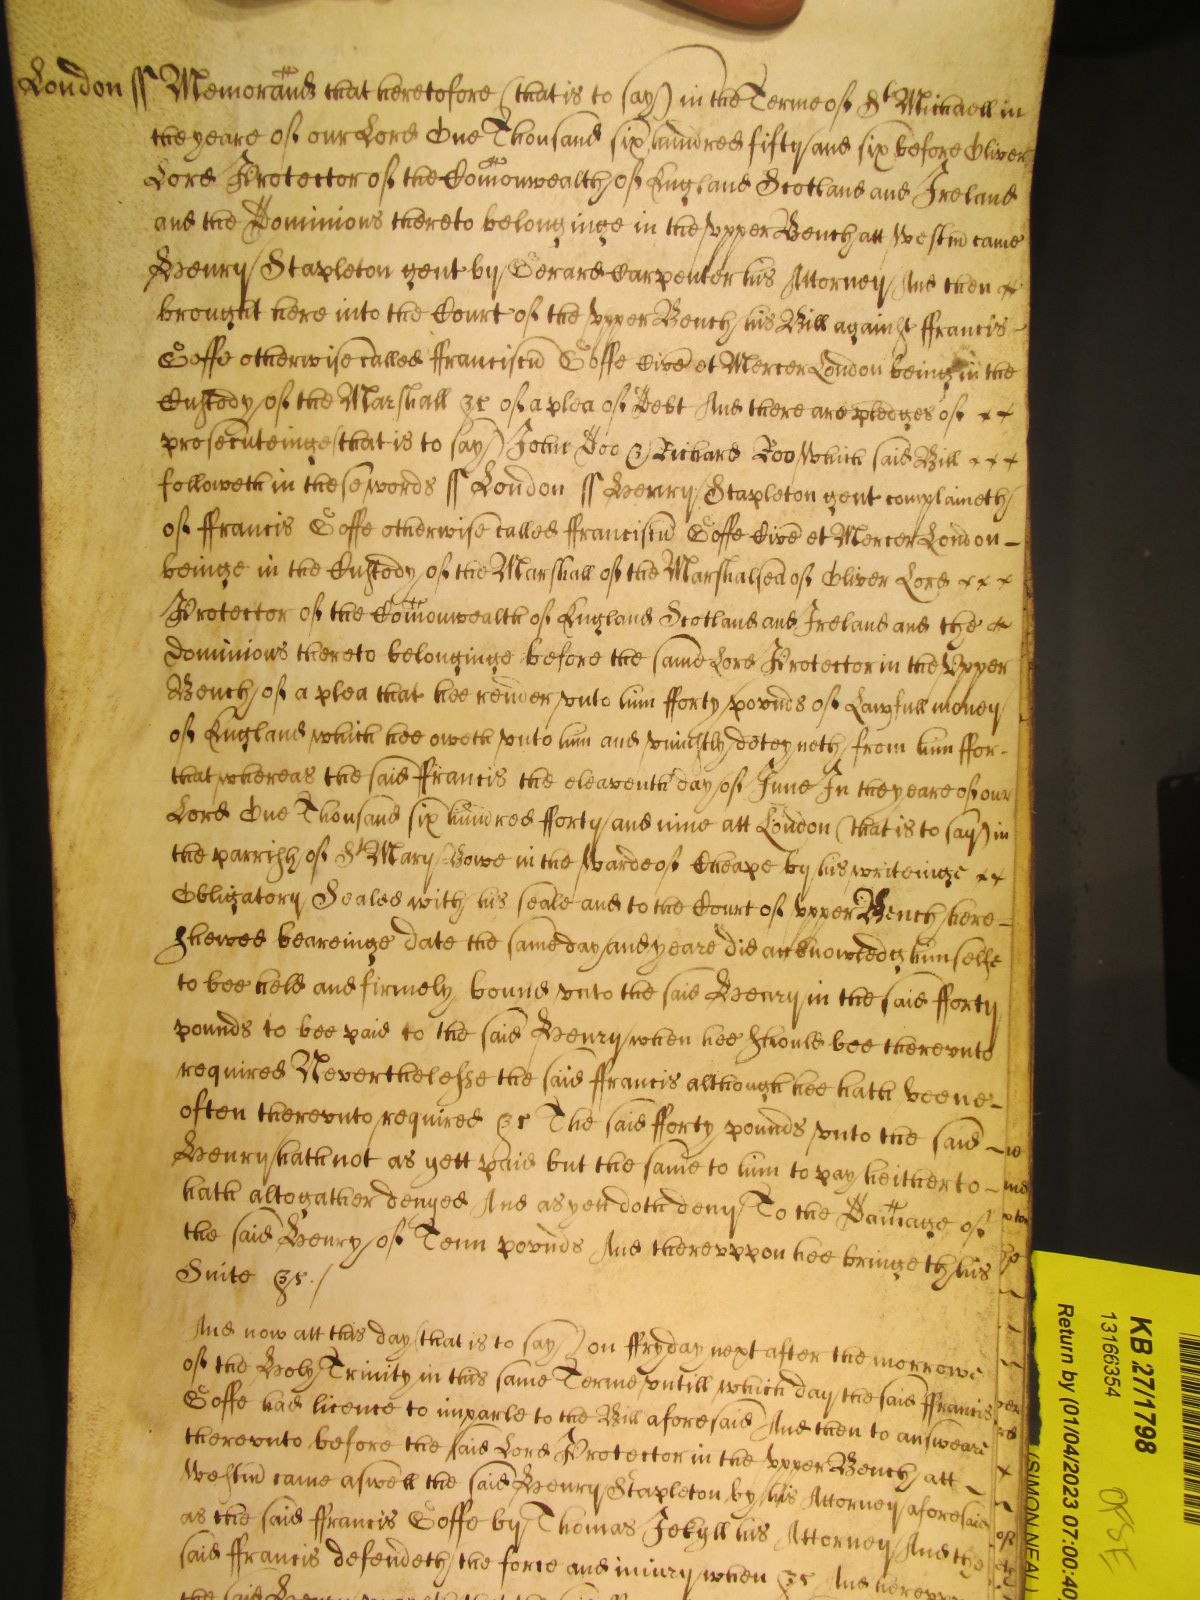 London ss Memorand that heretofore (that is to say) in the Terme of St Michaell in
the yeare of our Lord One Thousand six hundred fifty and six before Oliver
Lord Protector of the Comonwealth of England Scotland and Ireland
and the Dominions thereto belonginge in the vpper Bench att Westm came
Henry Stapleton gent by Gerard Carpenter his Attorney And then
brought here into the Court of the vpper Bench his Bill against ffrancis
Goffe otherwise called ffranciscu Goffe Civē et Mercer London being in the
Custody of the Marshall &c of a plea of Debt And there are pledges of
prosecuteinge (that is to say) John Doo & Richard Roo which said Bill
followeth in these words ss London ss Henry Stapleton gent complaineth
of ffrancis Goffe otherwise called ffranciscu Goffe Civē et Mercer London
beinge in the Custody of the Marshall of the Marshalsea of Oliver Lord
Protector of the Comonwealth of England Scotland and Ireland and the
dominions thereto belonginge before the same Lord Protector in the Vpper
Bench of a plea that hee render vnto him fforty pounds of Lawfull money
of England which hee oweth vnto him and vniustly deteyneth from him ffor
that whereas the said ffrancis the eleaventh day of June In the yeare of our
Lord One Thousand six hundred fforty and nine att London (that is to say) in
the parrish of St Mary Bowe in the Warde of Cheape by his writeinge
Obligatory Sealed with his seale and to the Court of vpper Bench here
shewed beareinge date the same day and yeare did acknowledg himselfe
to bee held and firmely bound vnto the said Henry in the said fforty
pounds to bee paid to the said Henry when hee should bee therevnto
required Neverthelesse the said ffrancis although hee hath beene
often therevnto required &c The said fforty pounds vnto the said
Henry hath not as yett paid but the same to him to pay heitherto
hath altogather denyed And as yett doth deny To the Damage of
the said Henry of Tenn pounds And therevppon hee bringeth his
Suite &c./
And now att this day (that is to say) on ffryday next after the morrowe
of the Holy Trinity in this same Terme vntill which day the said ffrancis
Goffe had licence to imparle to the Bill aforesaid And then to answeare
therevnto before the said Lord Protector in the vpper Bench att
Westm came aswell the said Henry Stapleton by his Attorney aforesaid
as the said ffrancis Goffe by Thomas Jekyll his Attorney And the
said ffrancis defendeth the force and iniury when &c And
KB 27/1798
13166354
Return by (01/04/2023 07:00:40
(SIMON NEAL)